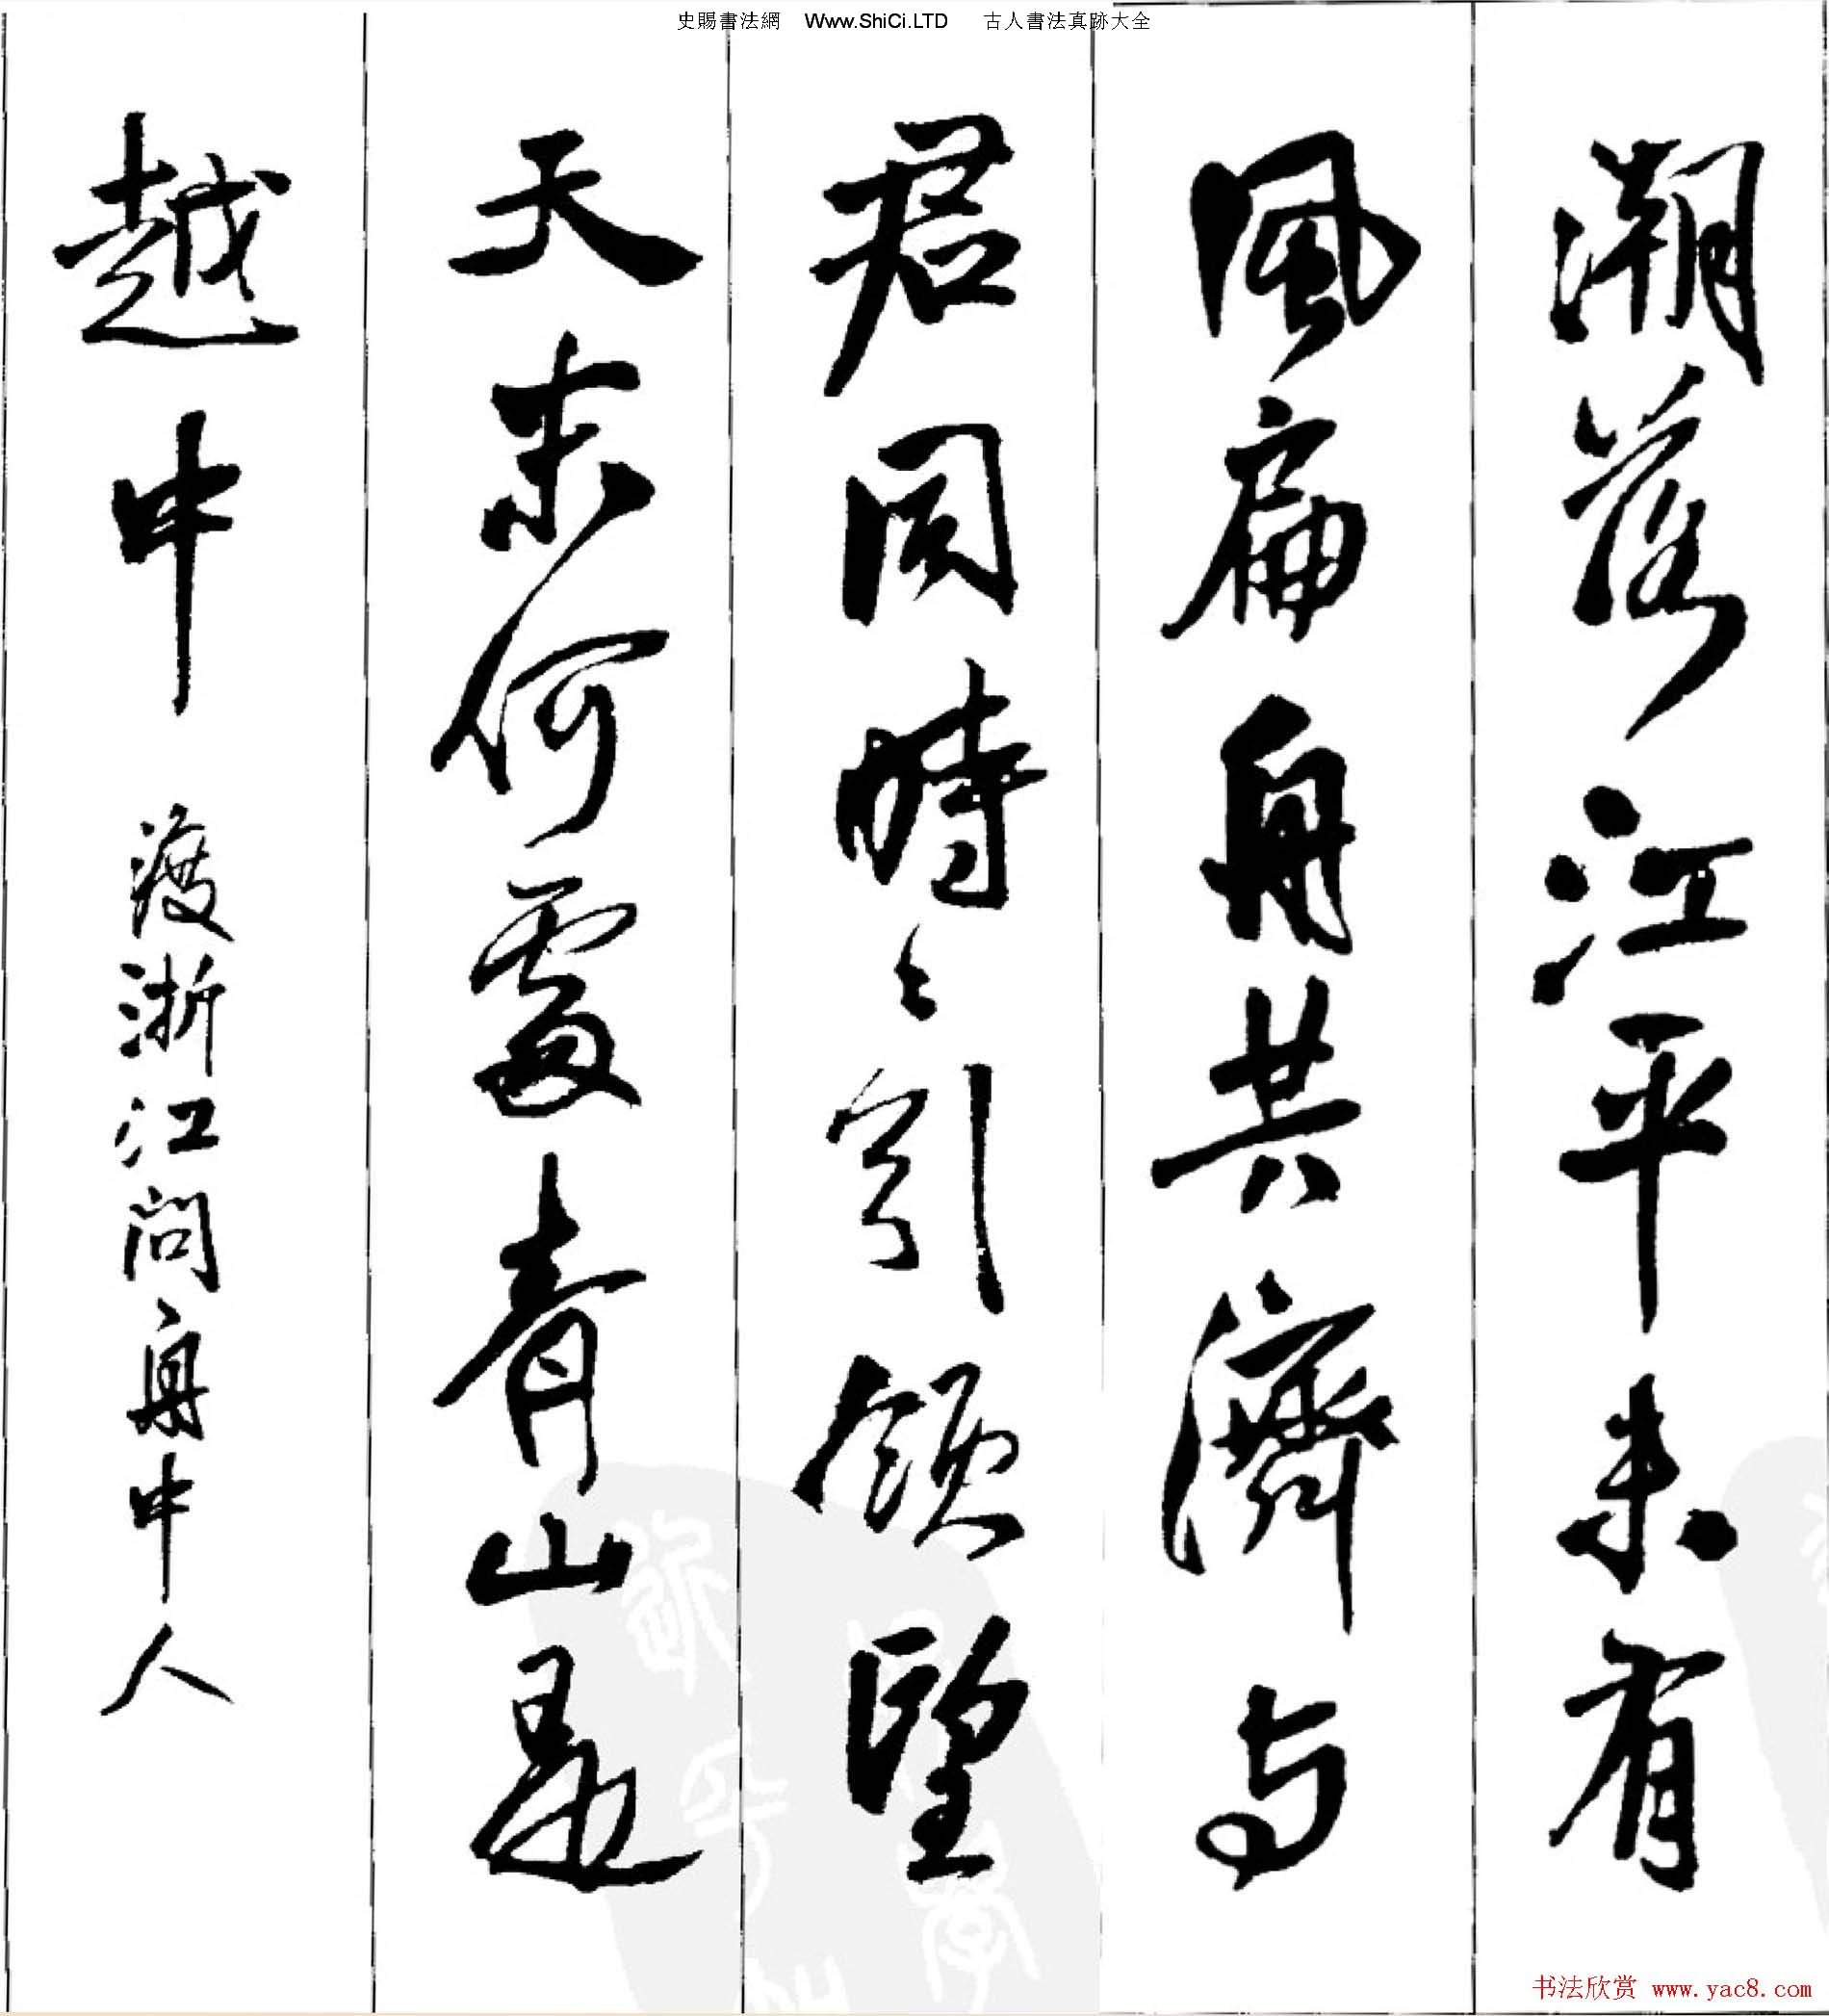 史賜書法網 Www.ShiCi.LTD 古人書法真跡大全
潮落江平未有
風扁舟共濟与
君同時〻引領望
天末何處青山是
越中 渡浙江問舟中人
书法欣赏 www.yac8.com